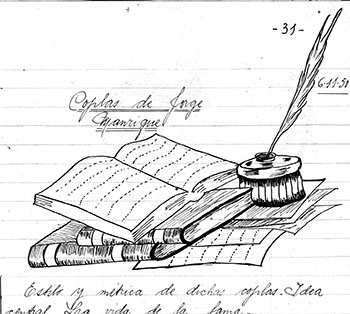 -31-
6-11-51
Coplas de Jorge
Manrique
Estilo y métrica de dichas coplas. Idea
central. La vida de la fama.